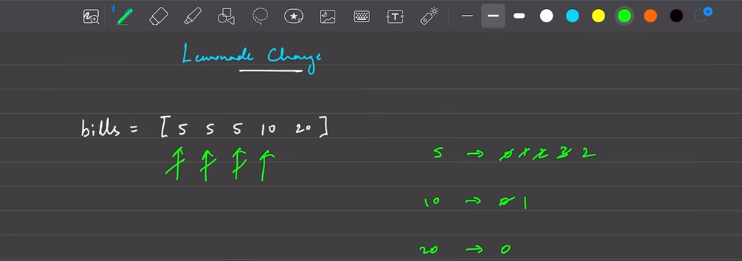 Lemonade Change
bills = [ 5 5 5 10 20 ]
5 → 0 1 2 3 2
10 → 0 1
20 → 0